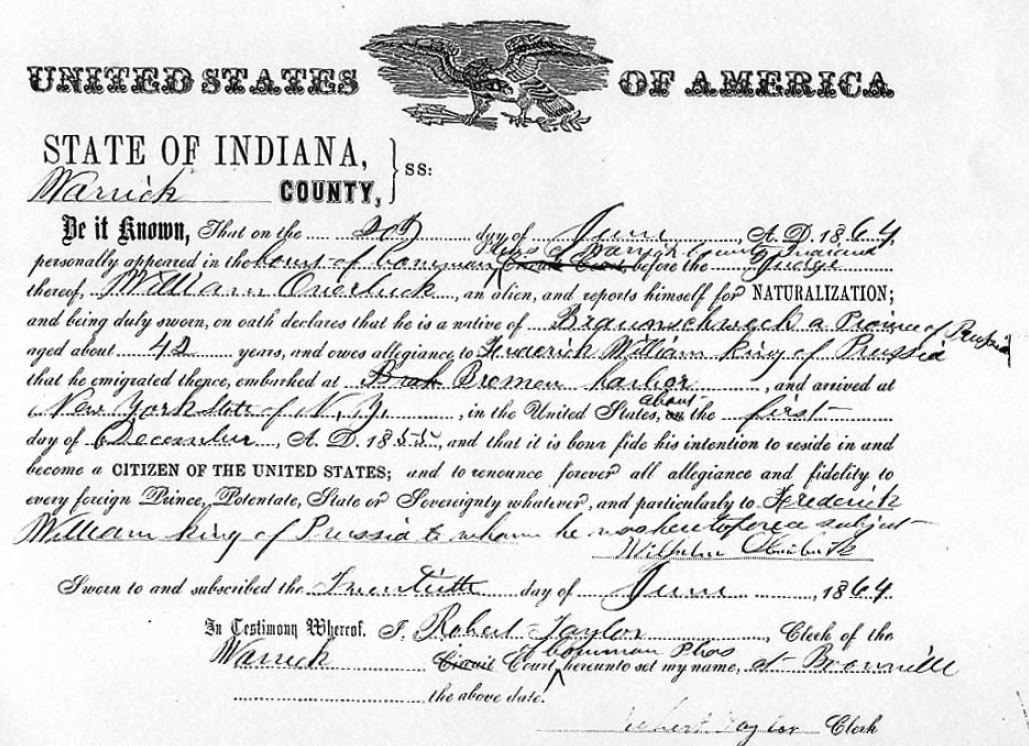 UNITED STATES OF AMERICA
STATE OF INDIANA,
Warrick COUNTY, } SS:
Be it Known, That on the 20th day of June, A. D. 1864,
personally appeared in the Court of Common Pleas of Warrick County Indiana Circuit Court before the Judge
thereof, William Overbuck, an alien, and reports himself for NATURALIZATION;
and being duly sworn, on oath declares that he is a native of Braunschweck a Province of Prussia
aged about 42 years, and owes allegiance to Frederick William King of Prussia
that he emigrated thence, embarked at Bremen harbor, and arrived at
New York state of N. Y., in the United States, about on the first
day of December, A. D. 1855, and that it is bona fide his intention to reside in and
become a CITIZEN OF THE UNITED STATES; and to renounce forever all allegiance and fidelity to
every foreign Prince, Potentate, State or Sovereignty whatever, and particularly to Frederick
William King of Prussia to whom he was heretofore a subject
Wilhelm
Sworn to and subscribed the Twentieth day of June, 1864.
In Testimony Whereof, I, Robert Taylor, Clerk of the
Warrick Circuit Court Common Pleas hereunto set my name, at Boonville
the above date.
Robert Taylor Clerk